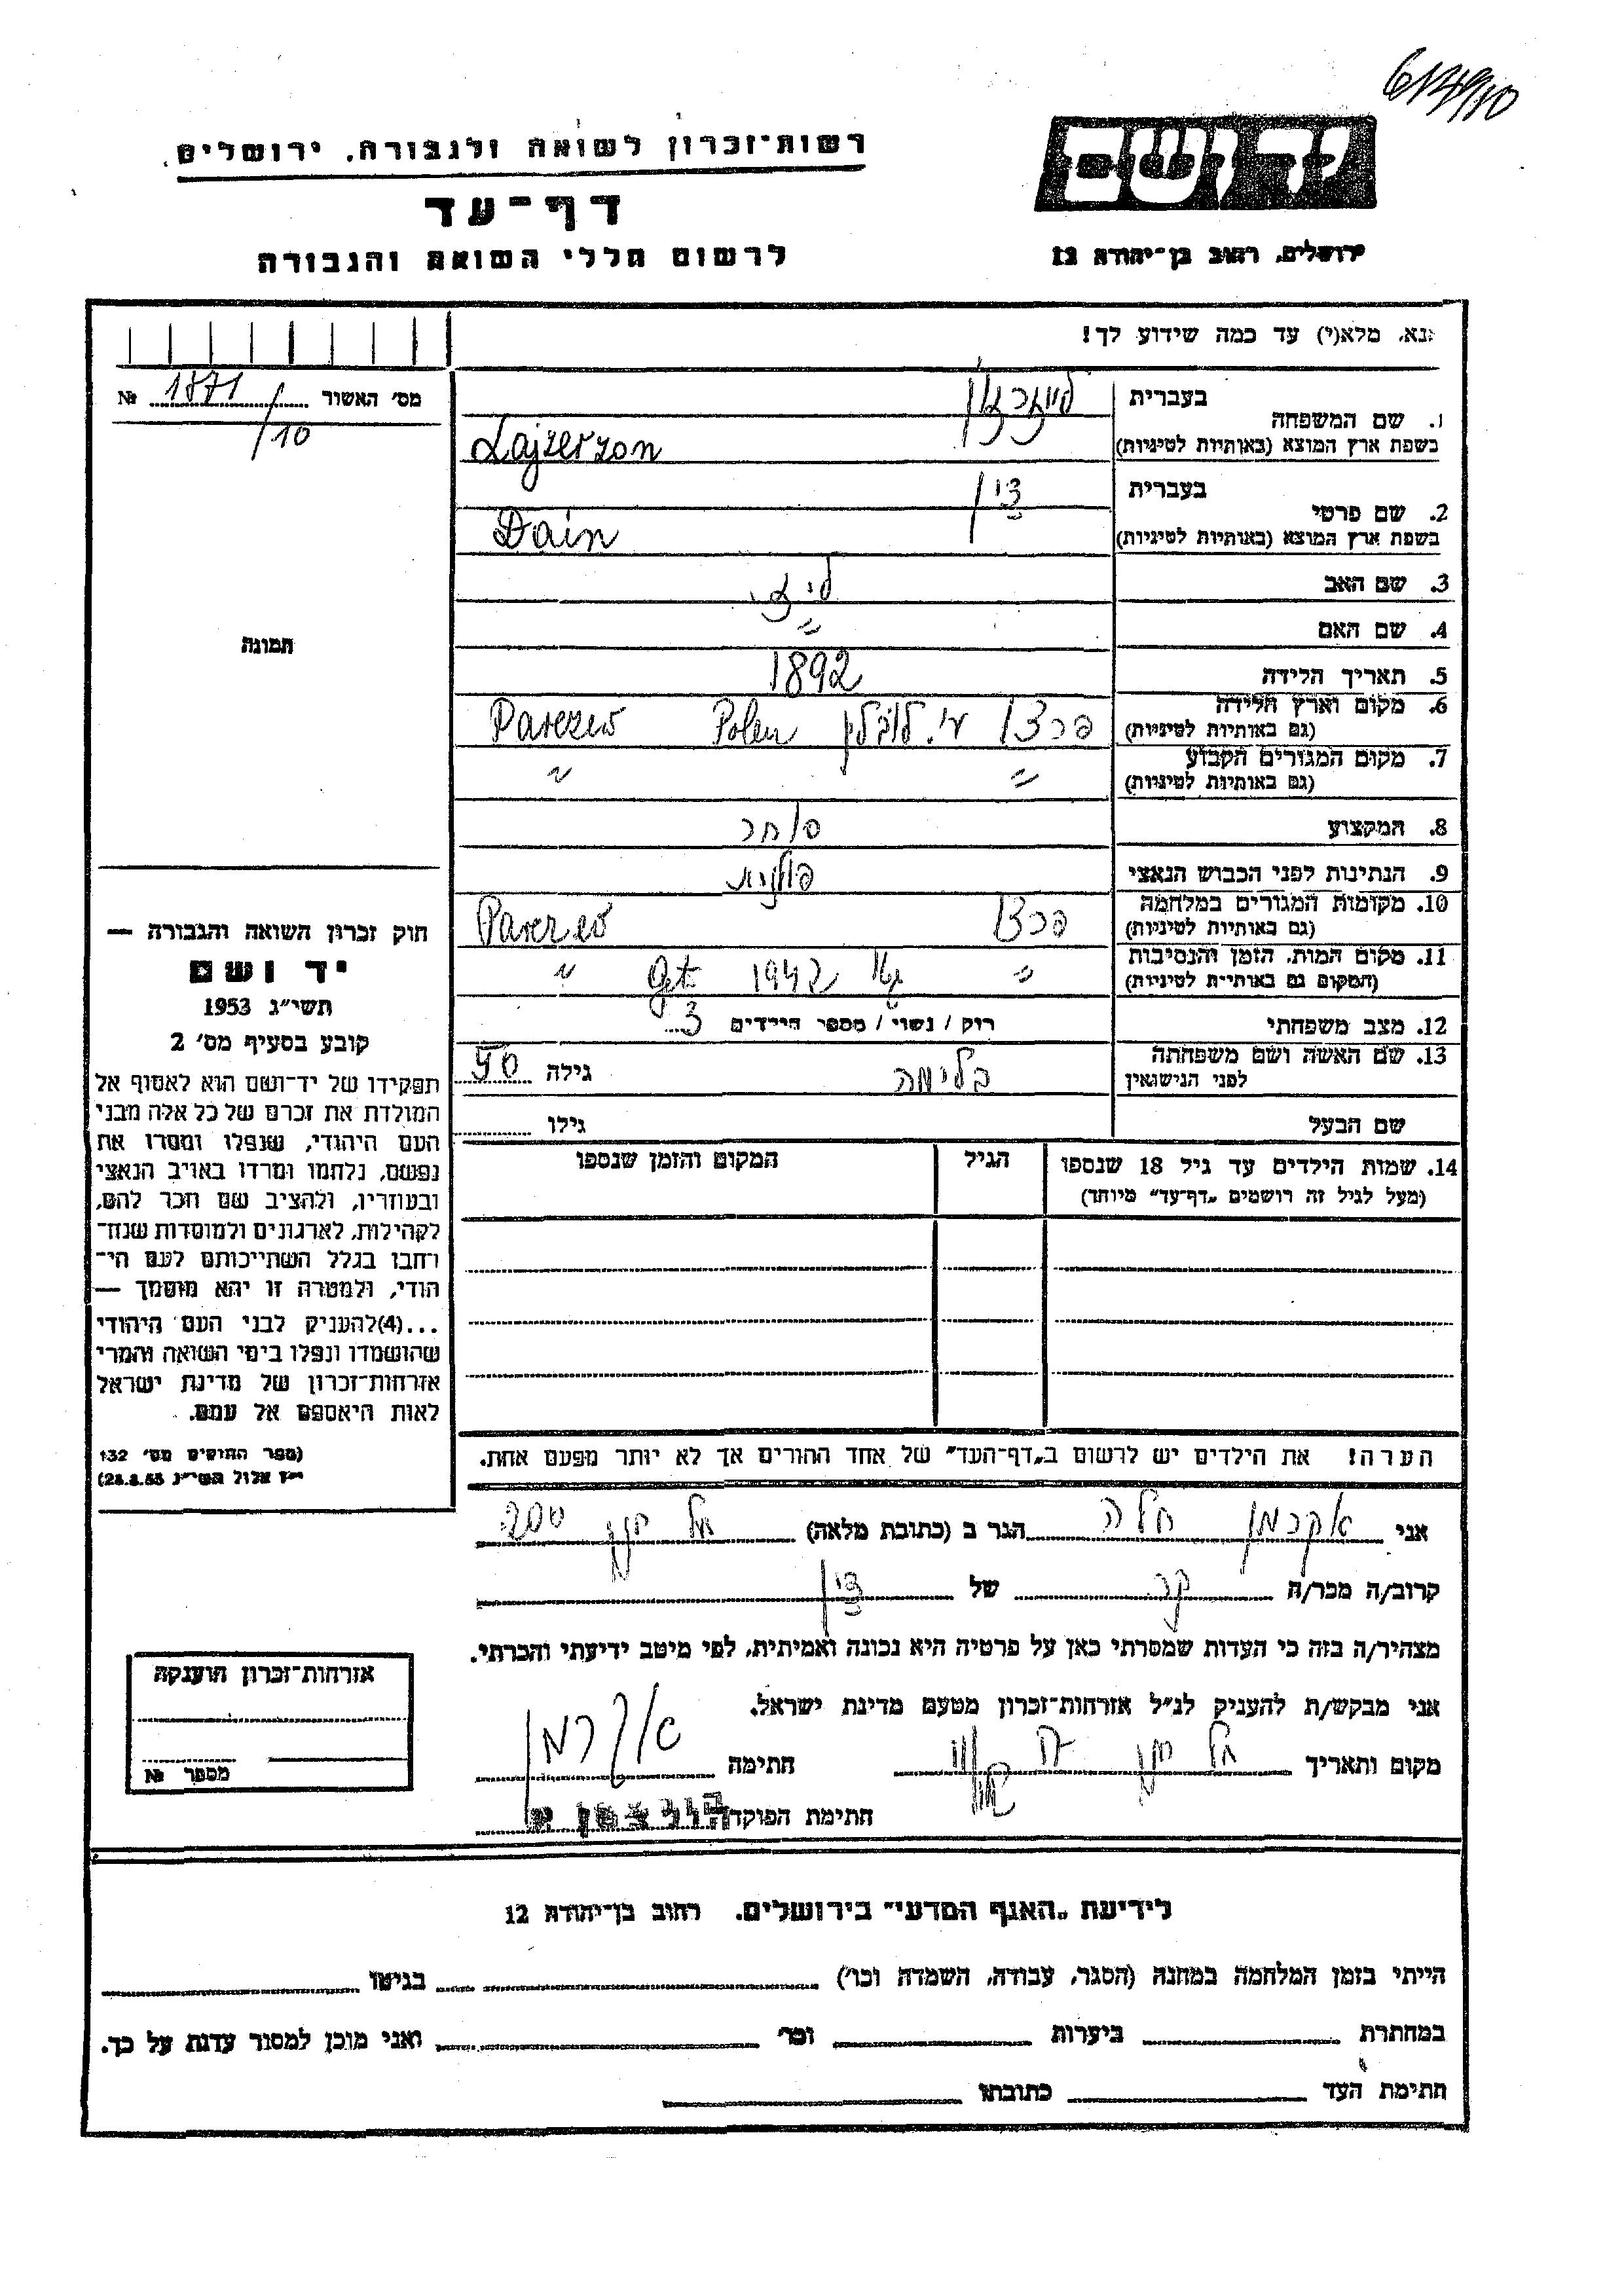 61749/10
יד ושם
רשות־זכרון לשואה ולגבורה, ירושלים.
דף־עד
ירושלים, רחוב בן־יהודה 12
לרשום חללי השואה והגבורה
נא, מלא(י) עד כמה שידוע לך!
מס׳ האשור 1871/10 №
1. שם המשפחה
בעברית לייזרזון
בשפת ארץ המוצא (באותיות לטיניות) Lajzerzon
2. שם פרטי
בעברית דיין
בשפת ארץ המוצא (באותיות לטיניות) Dain
3. שם האב
4. שם האם "
תמונה
5. תאריך הלידה 1892
6. מקום וארץ הלידה
(גם באותיות לטיניות) פרצו׳ ע״י לובלין Polen Parczew
7. מקום המגורים הקבוע
(גם באותיות לטיניות) " "
8. המקצוע סוחר
9. הנתינות לפני הכבוש הנאצי פולנית
10. מקומות המגורים במלחמה
(גם באותיות לטיניות) Parczew
11. מקום המות, הזמן והנסיבות
(המקום גם באותיות לטיניות) " 1942 get "
12. מצב משפחתי רוק / נשוי / מספר הילדים 3
13. שם האשה ושם משפחתה
לפני הנישואין בלימה גילה 50
שם הבעל גילו
14. שמות הילדים עד גיל 18 שנספו
(מעל לגיל זה רושמים „דף־עד״ מיוחד)
הגיל
המקום והזמן שנספו
חוק זכרון השואה והגבורה —
יד ושם
תשי״ג 1953
קובע בסעיף מס׳ 2
תפקידו של יד־ושם הוא לאסוף אל
המולדת את זכרם של כל אלה מבני
העם היהודי, שנפלו ומסרו את
נפשם, נלחמו ומרדו באויב הנאצי
ובעוזריו, ולהציב שם וזכר להם,
לקהילות, לארגונים ולמוסדות שנח־
רחבו בגלל השתייכותם לעם הי־
הודי, ולמטרה זו יהא מוסמך —
...(4)להעניק לבני העם היהודי
שהושמדו ונפלו בימי השואה והמרי
אזרחות־זכרון של מדינת ישראל
לאות היאספם אל עמם.
(ספר החוקים מס׳ 132
י״ז אלול תשי״ג 28.8.53)
הערה! את הילדים יש לרשום ב„דף־העד״ של אחד ההורים אך לא יותר מפעם אחת.
אני אקרמן חלה הגר ב (כתובת מלאה)
קרוב/ה מכר/ה של דיין
מצהיר/ה בזה כי העדות שמסרתי כאן על פרטיה היא נכונה ואמיתית, לפי מיטב ידיעתי והכרתי.
אני מבקש/ת להעניק לנ״ל אזרחות־זכרון מטעם מדינת ישראל.
מקום ותאריך חתימה אקרמן
חתימת הפוקד
אזרחות־זכרון הוענקה
מספר №
לידיעת „האגף המדעי״ בירושלים. רחוב בן־יהודה 12
הייתי בזמן המלחמה במחנה (הסגר, עבודה, השמדה וכו׳) בגיטו
במחתרת ביערות וכו׳ ואני מוכן למסור עדות על כך.
חתימת העד כתובתו